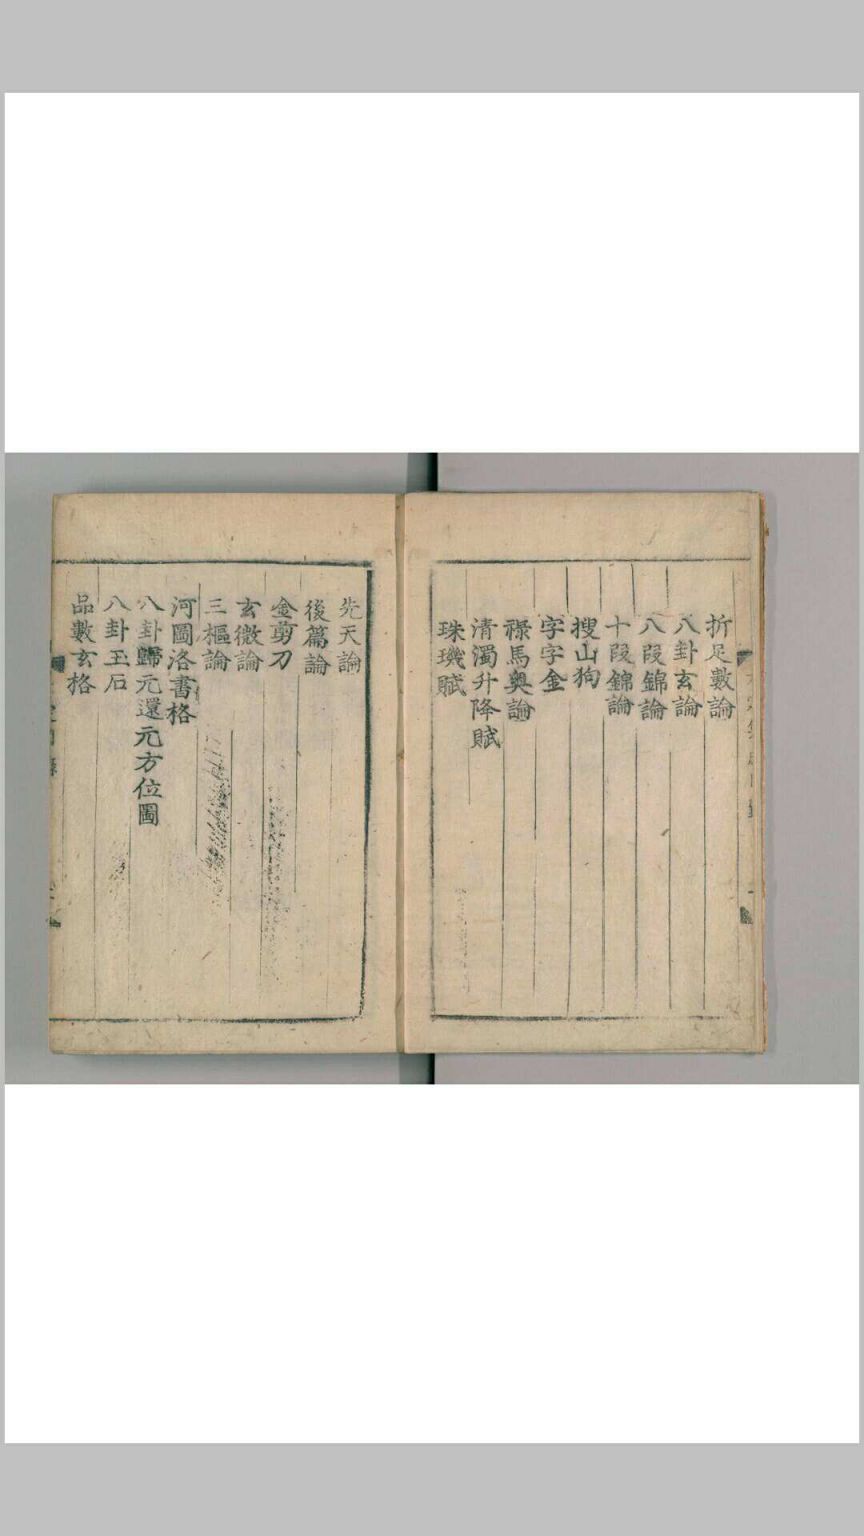 折足數論
八卦玄論
八段錦論
十段錦論
搜山狗
字字金
祿馬奧論
清濁升降賦
珠璣賦
先天論
後篇論
金剪刀
玄微論
三樞論
河圖洛書格
八卦歸元還元方位圖
八卦玉石
品數玄格